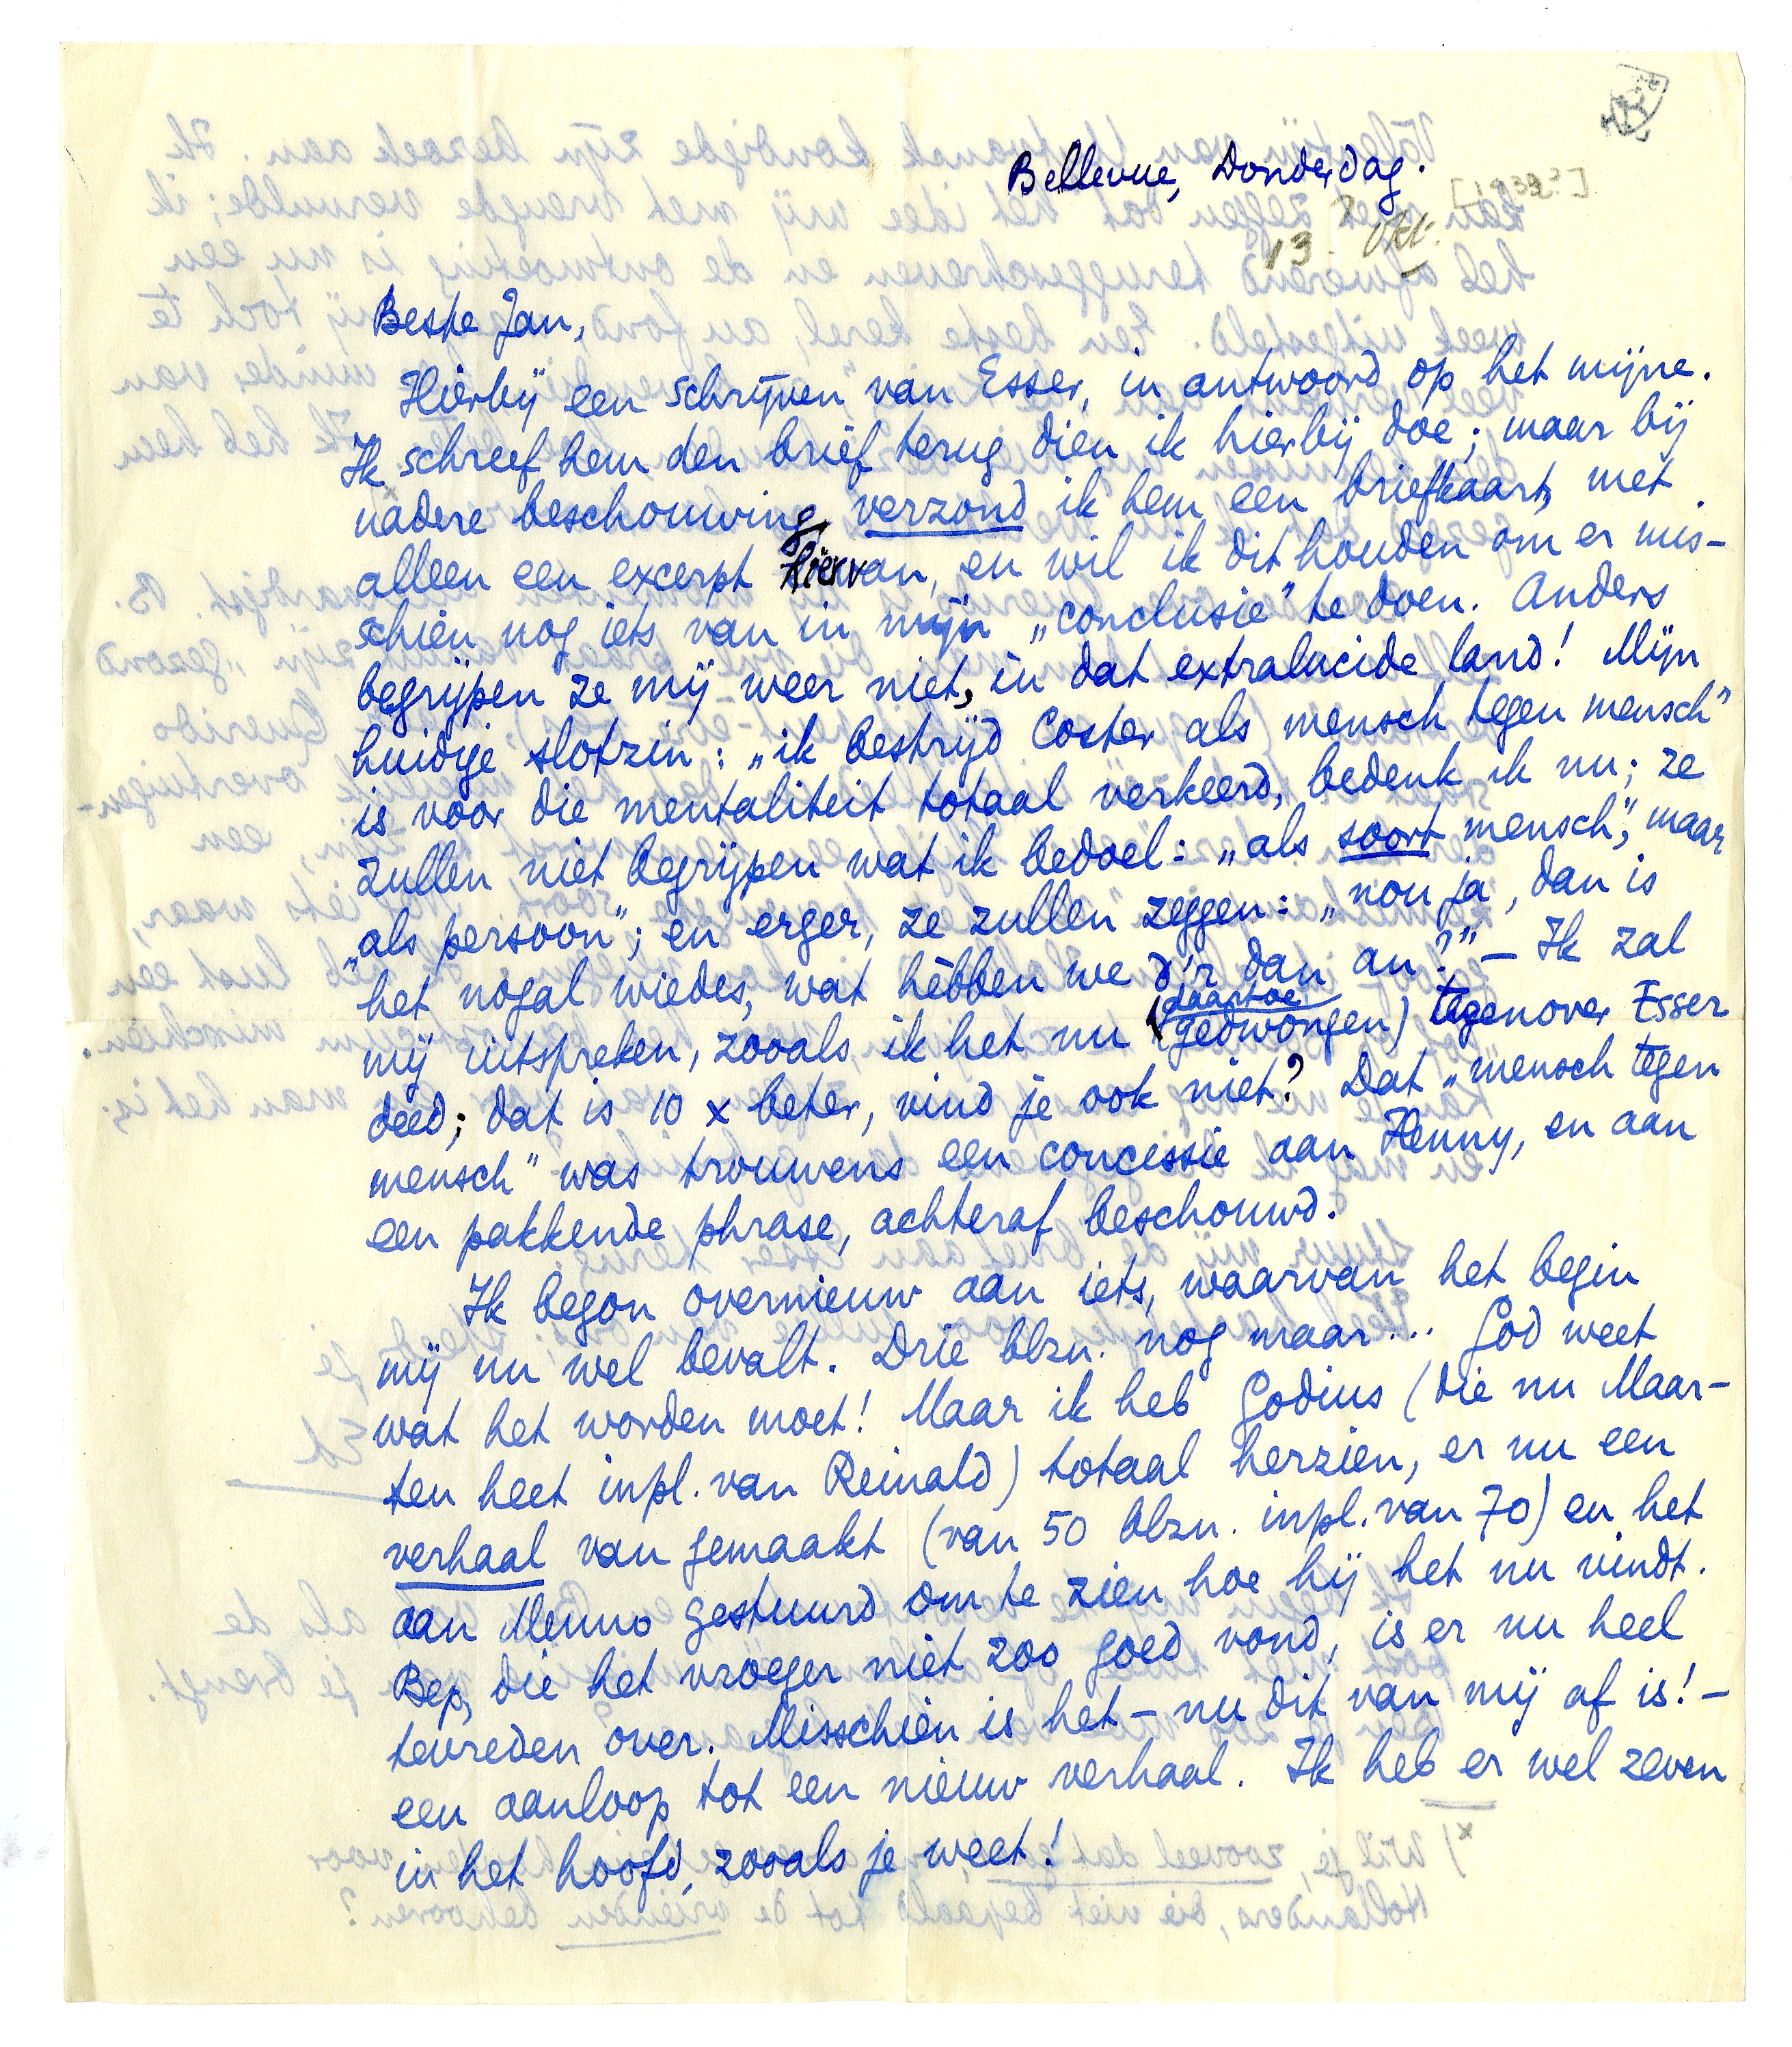 Bellevue, Donderdag.
13 Okt.
Beste Jan,
Hierbij een schrijven van Esser, in antwoord op het mijne.
Ik schreef hem den brief terug dien ik hierbij doe; maar bij
nadere beschouwing verzond ik hem een briefkaart, met
alleen een excerpt hiervan, en wil ik dit houden om er mis-
schien nog iets van in mijn „conclusie” te doen. Anders
begrijpen ze mij weer niet, in dat extralucide land! Mijn
huidige slotzin: „ik bestrijd Coster als mensch tegen mensch”
is voor die mentaliteit totaal verkeerd, bedenk ik nu; ze
zullen niet begrijpen wat ik bedoel: „als soort mensch”, maar
„als persoon”; en erger, ze zullen zeggen: „nou ja, dan is
het nogal wiedes, wat hèbben we d'r dan an?” — Ik zal
mij uitspreken, zooals ik het nu (daartoe gedwongen) tegenover Esser
deed; dat is 10 x beter, vind je ook niet? Dat „mensch tegen
mensch” was trouwens een concessie aan Henny, en aan
een pakkende phrase, achteraf beschouwd.
Ik begon overnieuw aan iets, waarvan het begin
mij nu wel bevalt. Drie blzn. nog maar.... God weet
wat het worden moet! Maar ik heb Godius (die nu Maar-
ten heet inpl. van Reinald) totaal herzien, er nu een
verhaal van gemaakt (van 50 blzn. inpl. van 70) en het
aan Menno gestuurd om te zien hoe hij het nu vindt.
Bep, die het vroeger niet zoo goed vond, is er nu heel
tevreden over. Misschien is het – nu dit van mij af is! –
een aanloop tot een nieuw verhaal. Ik heb er wel zeven
in het hoofd, zooals je weet!